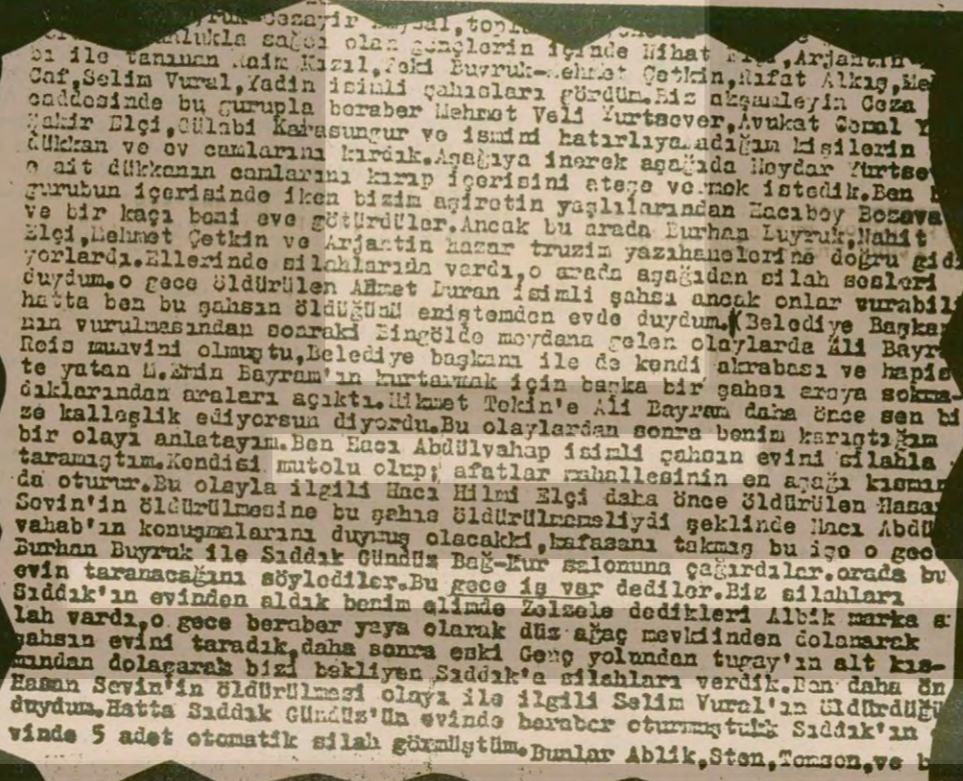 yruk Cezayir
lukla sağcı olan gençlerin içinde Nihat Elçi,Arjantin
bi ile tanınan Naim Kızıl,Zeki Buyruk-Mehmet Çetkin,Rıfat Alkış,Me
Caf,Selim Vural,Yadin isimli şahısları gördüm.Biz akşamleyin Ceza
caddesinde bu gurupla beraber Mehmet Veli Yurtsever,Avukat Cemal Y
Şakir Elçi,Gülabi Karasungur ve ismini hatırlıyamadığım kişilerin
dükkan ve ev camlarını kırdık.Aşağıya inerek aşağıda Haydar Yurtse
e ait dükkanın camlarını kırıp içerisini ateşe vermek istedik.Ben
gurubun içerisinde iken bizim aşiretin yaşlılarından Hacıbey Bozava
ve bir kaçı beni eve götürdüler.Ancak bu arada Burhan Buyruk,Nahit
Elçi,Mehmet Çetkin ve Arjantin hazar truzim yazıhanelerine doğru gidi
yorlardı.Ellerinde silahlarıda vardı,o arada aşağıdan silah sesleri
duydum.o gece öldürülen Ahmet Duran isimli şahsı ancak onlar vurabili
hatta ben bu şahsın öldüğünü eniştemden evde duydum.(Belediye Başkan
nın vurulmasından sonraki Bingölde meydana gelen olaylarda Ali Bayra
Reis muavini olmuştu,Belediye başkanı ile de kendi akrabası ve hapis
te yatan M.Emin Bayram'ın kurtarmak için başka bir şahsı araya sokma-
dıklarından araları açıktı.Hikmet Tekin'e Ali Bayram daha önce sen bi
ze kalleşlik ediyorsun diyordu.Bu olaylardan sonra benim karıştığım
bir olayı anlatayım.Ben Hacı Abdülvahap isimli şahsın evini silahla
taramıştım.Kendisi mutolu olup; afatlar mahallesinin en aşağı kısmın
da oturur.Bu olayla ilgili Hacı Hilmi Elçi daha önce öldürülen Hasan
Sevin'in öldürülmesine bu şahıs öldürülmemeliydi şeklinde Hacı Abdül
vahab'ın konuşmalarını duymuş olacakki,kafasanı takmış bu işe o gece
Burhan Buyruk ile Sıddık Gündüz Bağ-Kur salonuna çağırdılar.orada bu
evin taranacağını söylediler.Bu gece iş var dediler.Biz silahları
Sıddık'ın evinden aldık benim elimde Zelzele dedikleri Albik marka s
lah vardı,o gece beraber yaya olarak düz ağaç mevkiinden dolanarak
şahsın evini taradık,daha sonra eski Genç yolundan tugay'ın alt kıs-
mından dolaşarak bizi bekliyen Sıddık'a silahları verdik.Ben daha ön
Hasan Sevin'in öldürülmesi olayı ile ilgili Selim Vural'ın öldürdüğü
duydum.Hatta Sıddık Gündüz'ün evinde beraber oturmuştukk Sıddık'ın
vinde 5 adet otomatik silah görmüştüm.Bunlar Ablik,Sten,Tomson,ve b